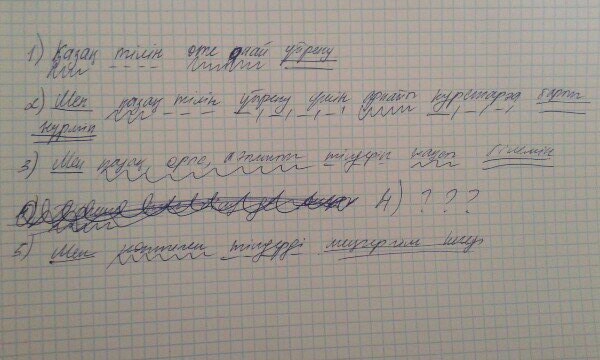 1) Қазақ тілін өте оңай үйрену
2) Мен қазақ тілін үйрену үшін арнайы курстарға барып
жүрмін
3) Мен қазақ орыс, тілдерін жақсы білемін
4) ? ? ?
5) Мен көптеген тілдерді меңгергім келеді